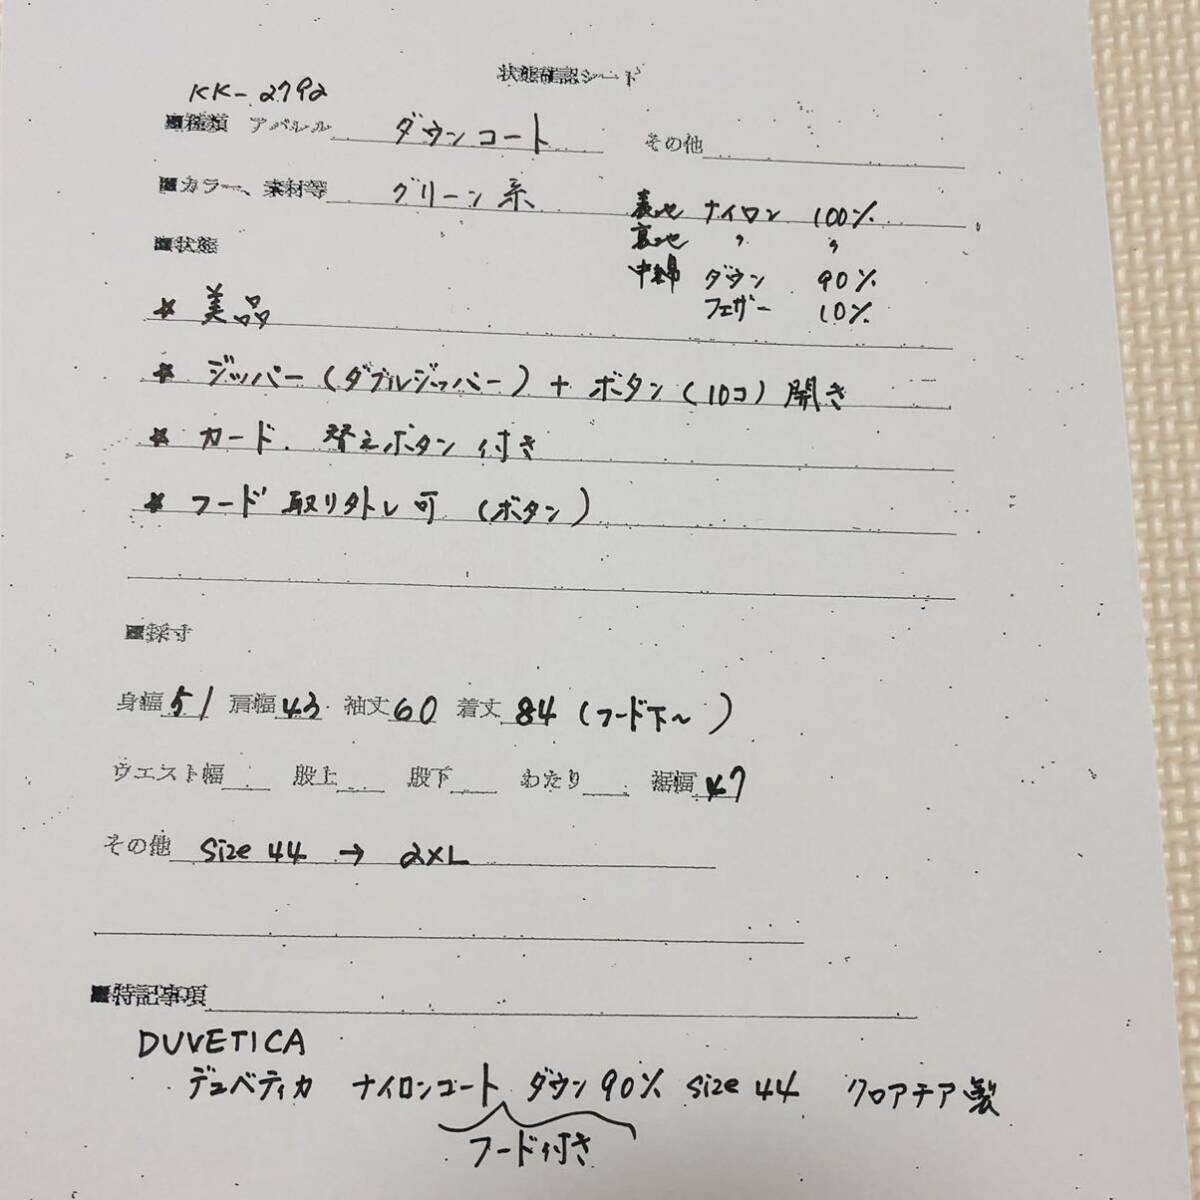 状態確認シート
KK-2792
■種類 アパレル ダウンコート その他
■カラー、素材等 グリーン系 表地 ナイロン 100%
裏地 〃 〃
■状態
中綿 ダウン 90%
フェザー 10%
★ 美品
★ ジッパー(ダブルジッパー)+ボタン(10コ)開き
★ カード、替えボタン付き
★ フード取り外し可 (ボタン)
■採寸
身幅 51 肩幅 43 袖丈 60 着丈 84 (フード下~)
ウエスト幅 股上 股下 わたり 裾幅 47
その他 size 44 → 2XL
■特記事項
DUVETICA
デュベティカ ナイロンコート ダウン90% size 44 クロアチア製
フード付き